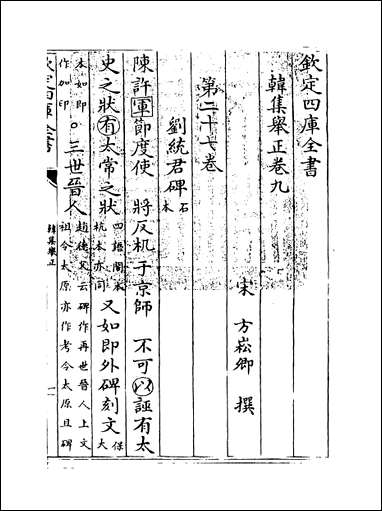 欽定四庫全書
韓集舉正卷九
宋 方崧卿 撰
第二十七卷
劉統君碑 石本
陳許軍節度使 將反机于京師 不可以誣有太
史之狀有太常之狀 四語閣本杭本亦同 又如即外碑刻文 保大
本如即作加印 。三世晉人 趙德父云碑作再世晉人上文祖令太原亦作考令太原且碑
欽定四庫全書
韓集舉正
一